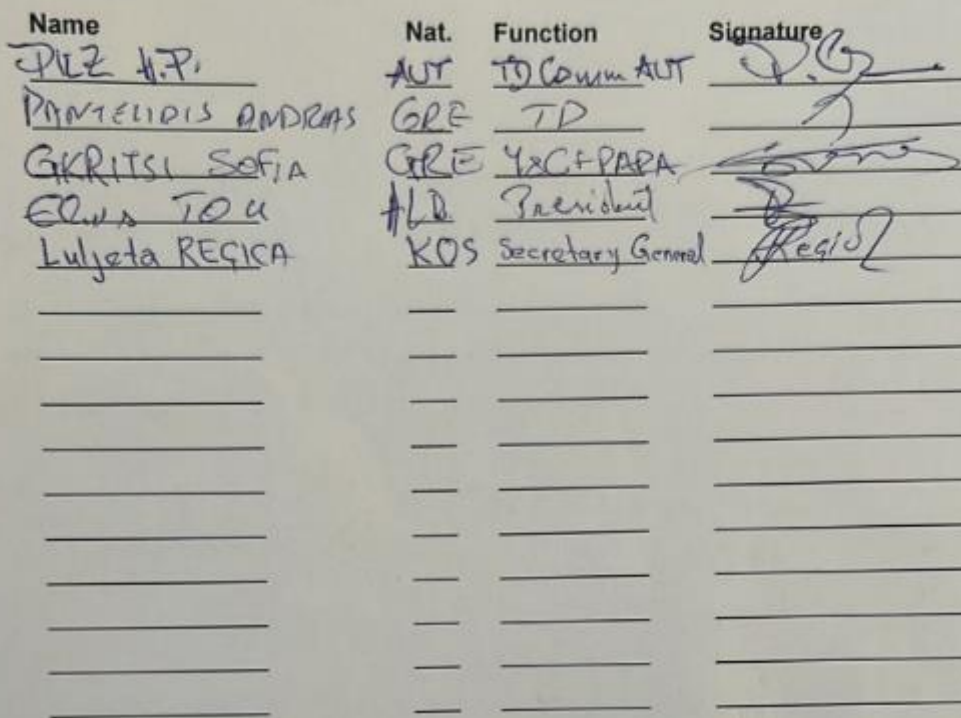 Name Nat. Function Signature
PILZ H.P. AUT TD Comm AUT
PANTELIDIS ANDREAS GRE TD
GKRITSI SOFIA GRE Y&C+PAPA
President
Luljeta REGICA KOS Secretary General